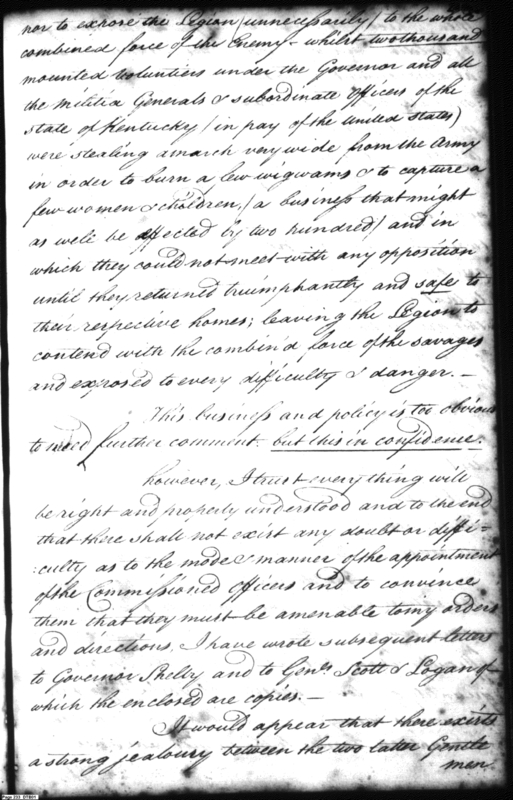 nor to expose the Legion (unnecessarily) to the whole
combined force of the Enemy - whilst two thousand
mounted Voluntiers under the Governor and all
the Militia Generals & subordinate Officers of the
state of Kentucky (in pay of the united states)
were stealing a march very wide from the Army
in order to burn a few wigwams & to capture a
few women & children, (a business that might
as well be effected by two hundred) and in
which they could not meet with any opposition
until they returned triumphantly and safe to
their respective homes; leaving the Legion to
contend with the combin'd force of the savages
and exposed to every difficulty & danger. -
This business and policy is too obvious
to need further comment. but this in confidence.
however, I trust every thing will
be right and properly understood and to the end
that there shall not exist any doubt or diffi=
:culty as to the mode & manner of the appointment
of the Commissioned Officers and to convince
them that they must be amenable to my orders
and directions, I have wrote subsequent letters
to Governor Shelby and to Genls. Scott & Logan of
which the enclosed are copies. -
It would appear that there exists
a strong jealousy between the two latter Gentle
men.
Page 223